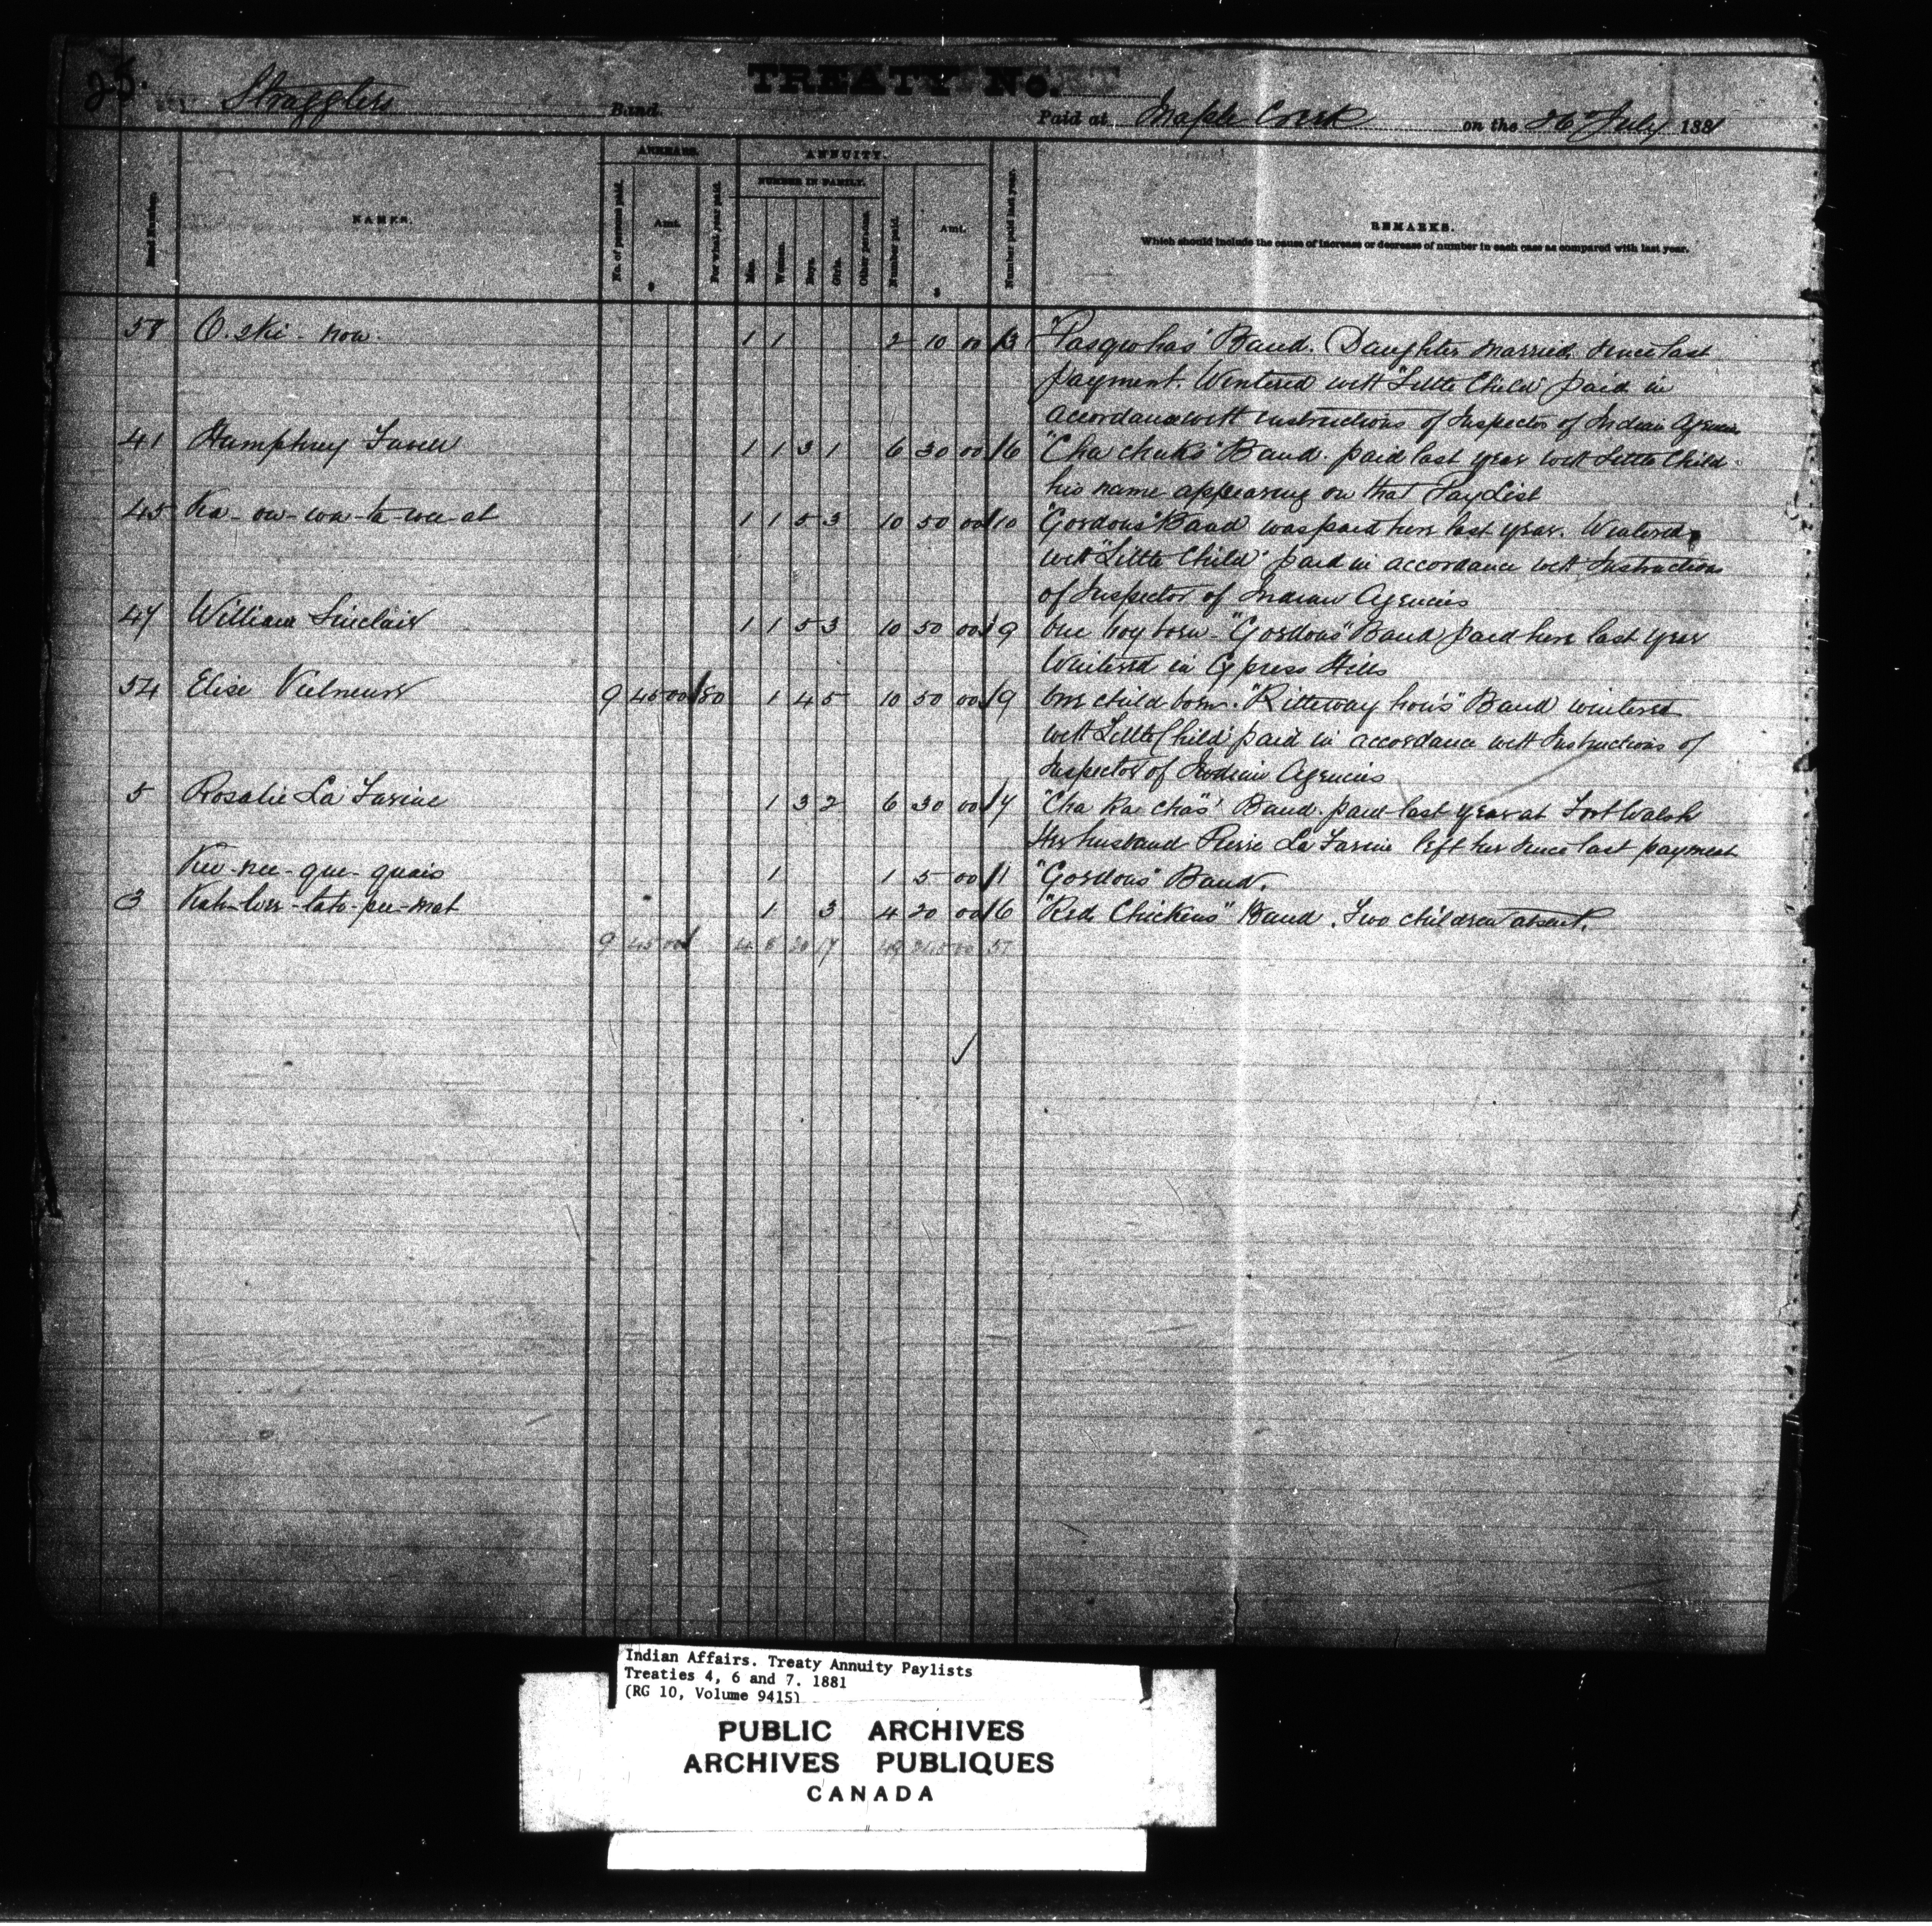 25.
TREATY No.
Stragglers Band. Paid at Maple Creek on the 26 July 1881
ARREARS. ANNUITY.
NUMBER IN FAMILY.
Band Number. NAMES. No. of persons paid. Amt. $ For what year paid. Men. Women. Boys. Girls. Other persons. Number paid. Amt. $ Number paid last year. REMARKS.
Which should include the cause of increase or decrease of number in each case as compared with last year.
58 O. ski - now. 1 1 2 10 00 3 "Pasquohas" Band. Daughter married since last
payment. Wintered with "Little Child" paid in
accordance with instructions of Inspector of Indian Agencies
41 Humphrey Favell 1 1 3 1 6 30 00 6 "Cha chuks" Band. paid last year with Little Child
his name appearing on that Pay List
45 Ka - ow - wa - ta - wee - at 1 1 5 3 10 50 00 10 "Gordons" Band was paid here last year. Wintered
with "Little Child" paid in accordance with Instructions
of Inspector of Indian Agencies
47 William Sinclair 1 1 5 3 10 50 00 9 One boy born - "Gordons" Band paid here last year
Wintered in Cypress Hills
54 Elise 9 45 00 /80 1 4 5 10 50 00 9 One child born. Band wintered
with Little Child paid in accordance with Instructions of
Inspector of Indian Agencies
5 Rosalie La 1 3 2 6 30 00 7 "Cha Ka chas" Band. paid last year at Fort Walsh
Her husband Pierre La left her since last payment
Kee - nee - que - quais 1 1 5 00 1 "Gordons" Band.
3 1 3 4 20 00 6 "Red Chickens" Band. Two children absent.
9 45 00 4 8 20 17 49 245 00 51
Indian Affairs. Treaty Annuity Paylists
Treaties 4, 6 and 7. 1881
(RG 10, Volume 9415)
PUBLIC ARCHIVES
ARCHIVES PUBLIQUES
CANADA